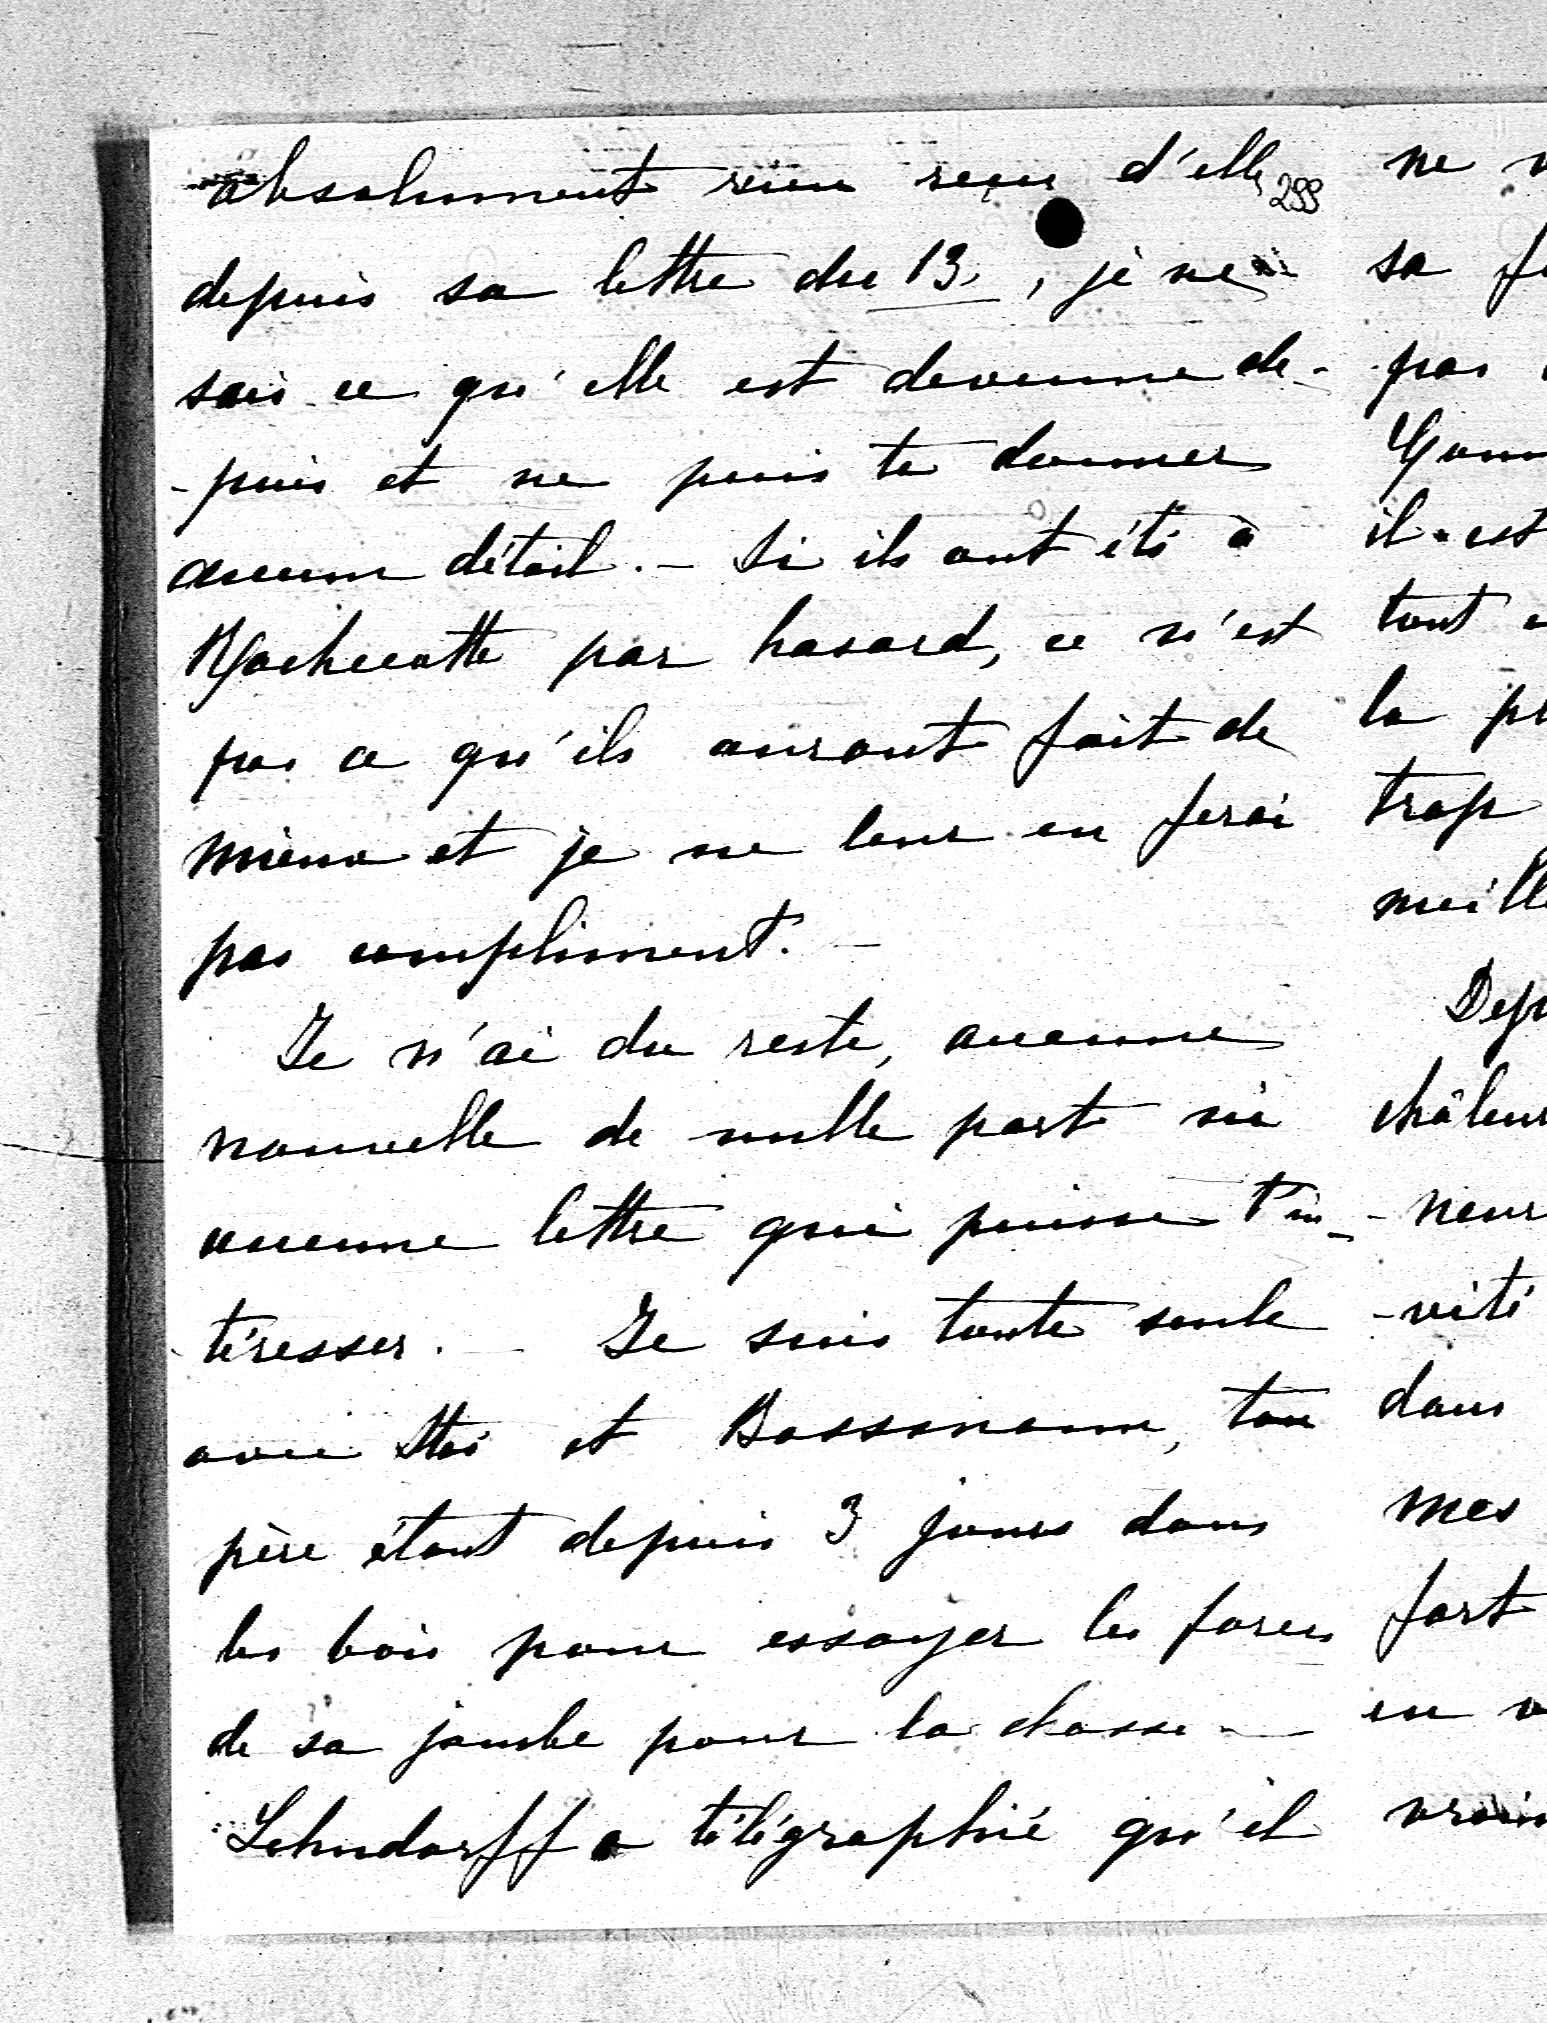 absolument rien reçu d'elle
299
depuis sa lettre du 13, je ne
sais ce qu'elle est devenue de-
-puis et ne puis te donner
aucun détail. - Si ils ont été à
Rochecotte par hasard, ce n'est
pas ce qu'ils auront fait de
mieux et je ne leur en ferai
pas compliment. -
Je n'ai du reste, aucune
nouvelle de nulle part ni
aucune lettre qui puisse t'in-
téresser. - Je suis toute seule
avec et ton
père étant depuis 3 jours dans
les bois pour essayer les forces
de sa jambe pour la chasse -
Lehndorff a télégraphié qu'il
ne
sa
pas
il est
tout
la
trop
-vité
dans
mes
fort
en